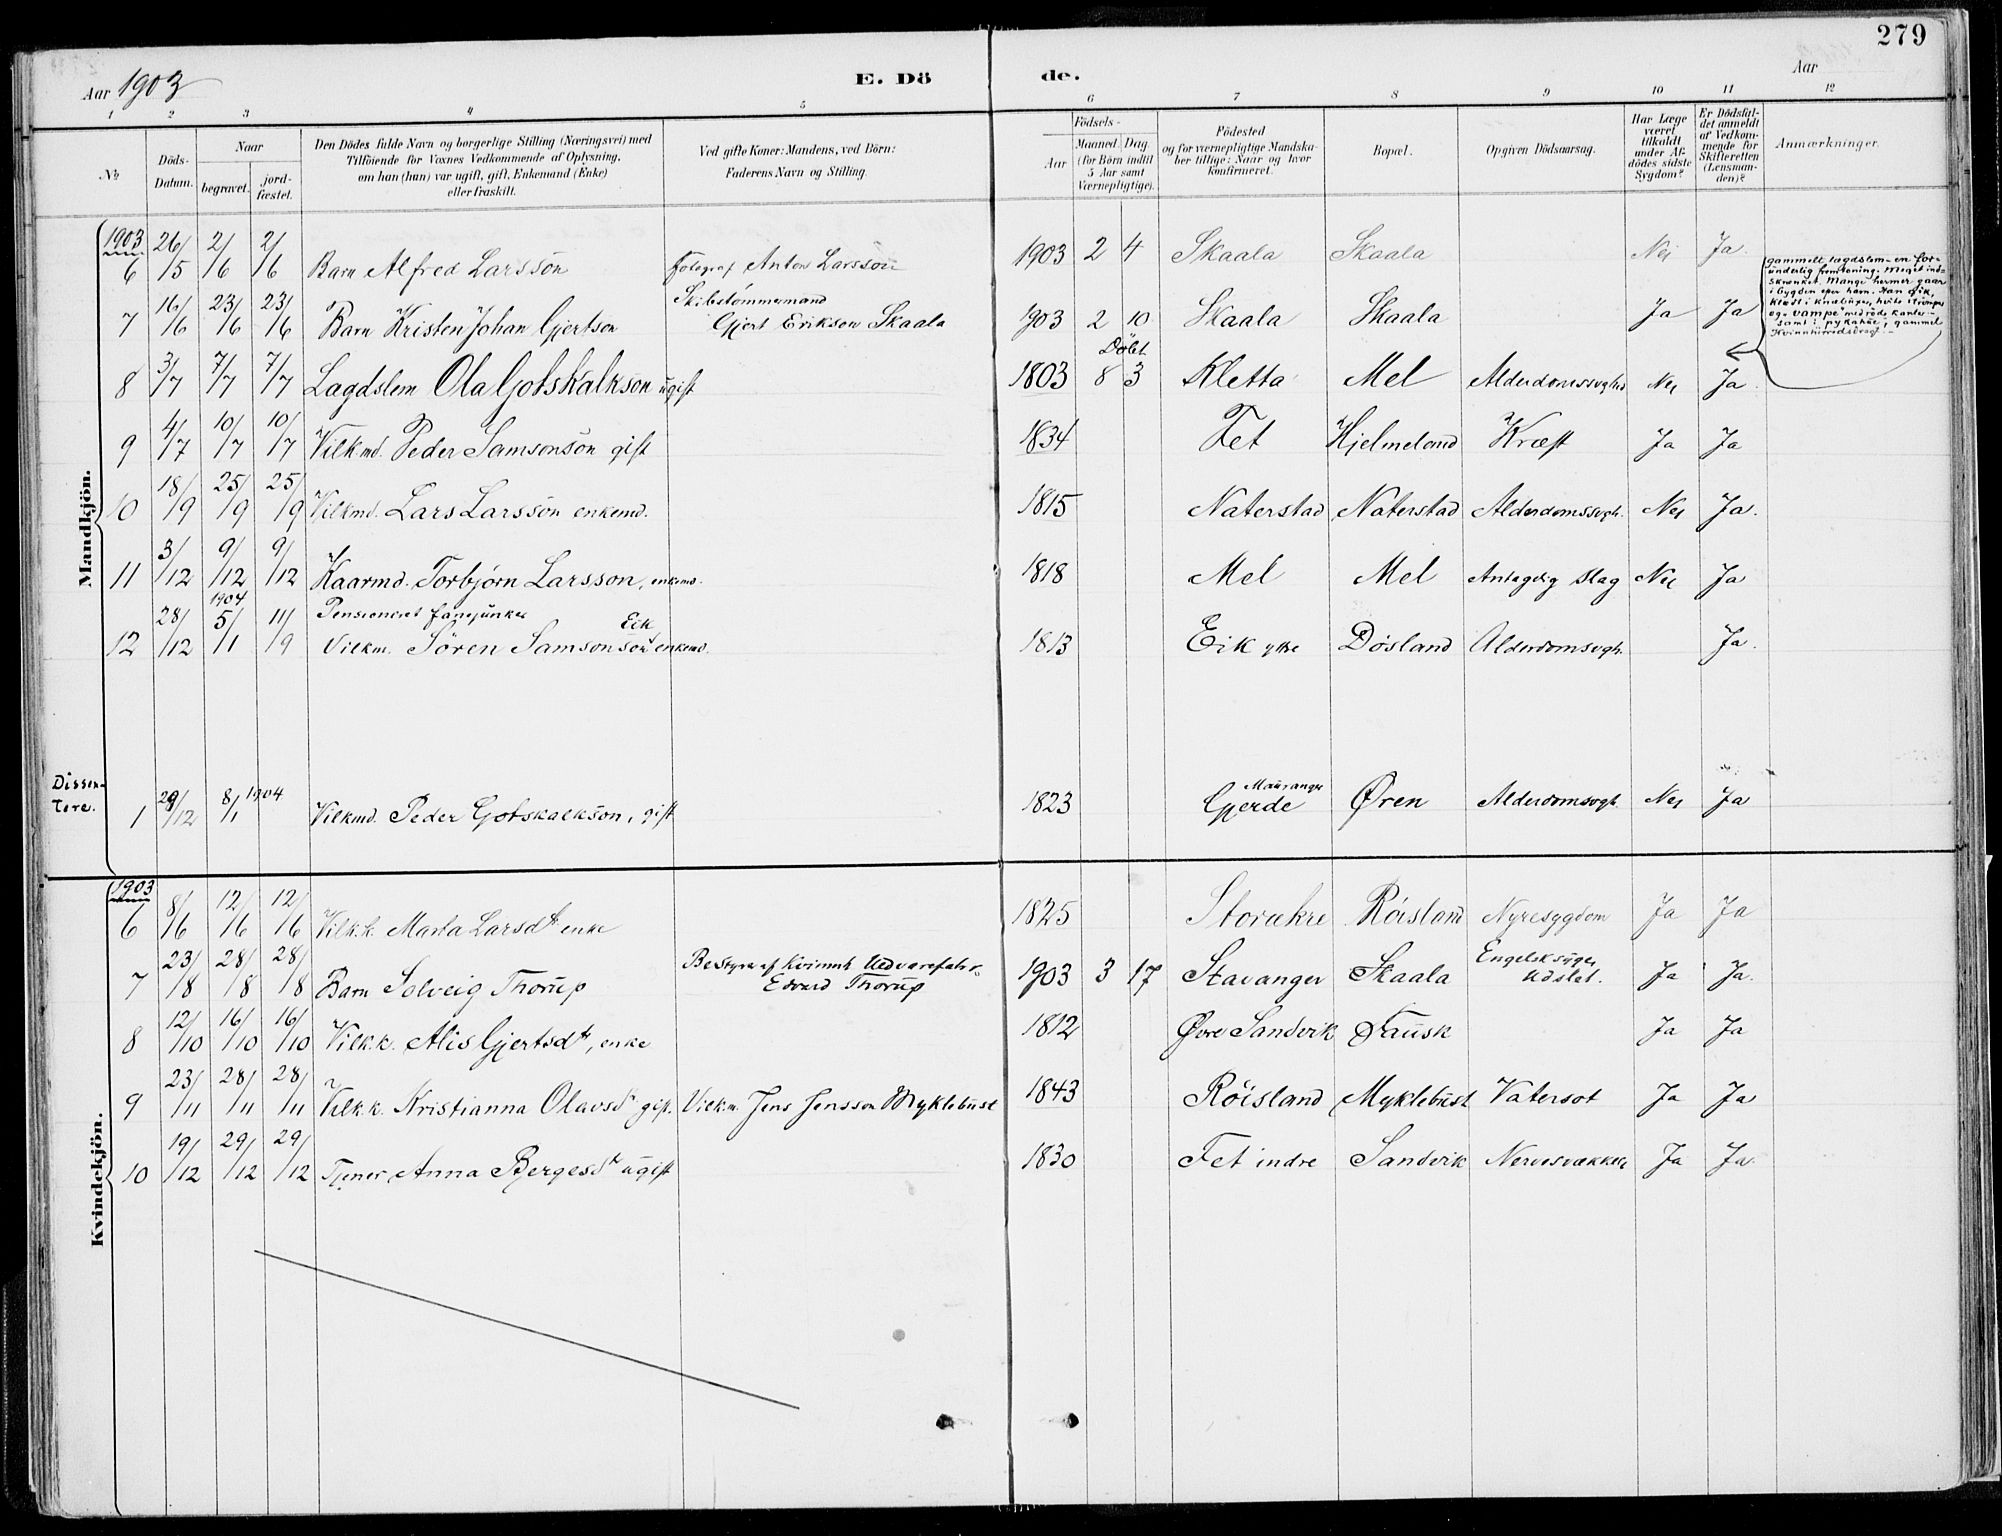 279
Aar 1903
E. Dö
de.
Aar
1 2 3 4 5 6 7 8 9 10 11 12
No.
Döds-Datum.
Naar
begravet.
jord-fæstet.
Den Dödes fulde Navn og borgerlige Stilling (Næringsvei) med
Tilföiende for Voxnes Vedkommende af Oplysning,
om han (hun) var ugift, gift, Enkemand (Enke)
eller fraskilt.
Ved gifte Koner: Mandens, ved Börn:
Faderens Navn og Stilling.
Födsels-
Aar
Maaned. Dag.
(for Börn indtil
5 Aar samt
Værnepligtige).
Födested
og for værnepligtige Mandska-
ber tillige: Naar og hvor
konfirmeret.
Bopæl.
Opgiven Dödsaarsag.
Har Læge
været
tilkaldt
under Af-
dödes sidste
Sygdom?
Er Dödsfal-
det anmeldt
af Vedkom-
mende for
Skifteretten
(Lensman-
den)?
Anmærkninger.
Mandkjön.
1903
6 26/5 2/6 2/6 Barn Alfred Larsson fotograf Anton Larsson 1903 2 4 Skaala Skaala Nei Ja.
7 16/6 23/6 23/6 Barn Kristen Johan Gjertson Skibstømmermand
Gjert Erikson Skaala 1903 2 10 Skaala Skaala Ja Ja
8 3/7 7/7 7/7 Lagdslem Ola Gotskalkson ugift 1803 Döbt
8 3 Kletta Mel Alderdomssvaghed Nei Ja.
gammelt lagdslem - en for-
underlig fremtoning. Meget ind-
skrænket. Mange hermer gaar
i bygden efter ham. Han gik
klædt i knæbuxer, hvite strømper
og "vampe" med røde kanter -
samt i pykahue, gammel
9 4/7 10/7 10/7 Vilkmd. Peder Samsonson gift 1834 Fet Hjelmeland Kræft Ja Ja
10 18/9 25/9 25/9 Vilkmd. Lars Larsson enkemd. 1815 Naterstad Naterstad Alderdomssvgh. Nei Ja.
11 3/12 9/12 9/12 Kaarmd. Torbjørn Larsson, enkemd. 1818 Mel Mel Antagelig slag Nei Ja
12 28/12 1904 5/1 11/9 Pensioneret fanejunker
Vilkm. Sören Samsonson Eik enkemd. 1813 Eik ytre Døsland Alderdomsvgh. Ja.
Dissen-
tere.
1 29/12 8/1 1904 Vilkmd. Peder Gotskalkson, gift 1823 Mauranger
Gjerde Øren Alderdomsvgh. Nei Ja
Kvindekjön.
1903
6 8/6 12/6 12/6 Vilk.k. Marta Larsdt. enke 1825 Storækre Röisland Nyresygdom Ja Ja
7 23/8 28/8 28/8 Barn Solveig Thorup Bestyrer af Kvinnh Uldvarefabr.
Edvard Thorup 1903 3 17 Stavanger Skaala Engelsk syge,
Udslet. Ja Ja.
8 12/10 16/10 16/10 Vilk.k. Alis Gjertsdt, enke 1812 Øvre Sandvik Tausk Ja Ja
9 23/11 28/11 28/11 Vilk.k. Kristianna Olavsdt gift. Vilk.m. Jens Jensson Myklebust 1843 Röisland Myklebust Vatersot Ja Ja
10 19/12 29/12 29/12 Tjener Anna Bergesdt ugift 1830 Fet indre Sandvik Nervesvækkelse Ja Ja.